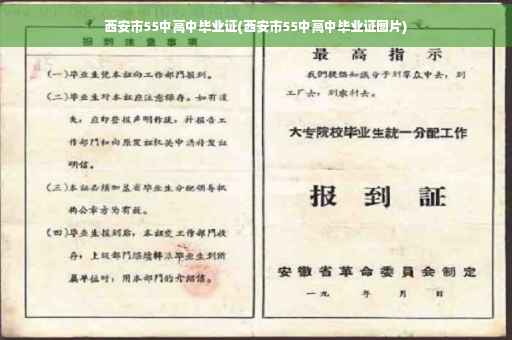 西安市55中高中毕业证(西安市55中高中毕业证图片)
报到注意事项
(一)毕业生凭本证向工作部门报到。
(二)毕业生对本证应注意保存。如有遗
失，应即登报声明作废，并报告工
作部门和向原发证机关申请补发证
明信。
(三)本证必须加盖省毕业生分配领导机
构公章方为有效。
(四)毕业生报到后，本证交工作部门收
存，上级部门
毕业生到所
属单位时，用本部门的介绍信。
最高指示
我们提倡知识分子到群众中去，到
工厂去，到农村去。
大专院校毕业生統一分配工作
报到証
安徽省革命委員会制定
一九 年 月 日